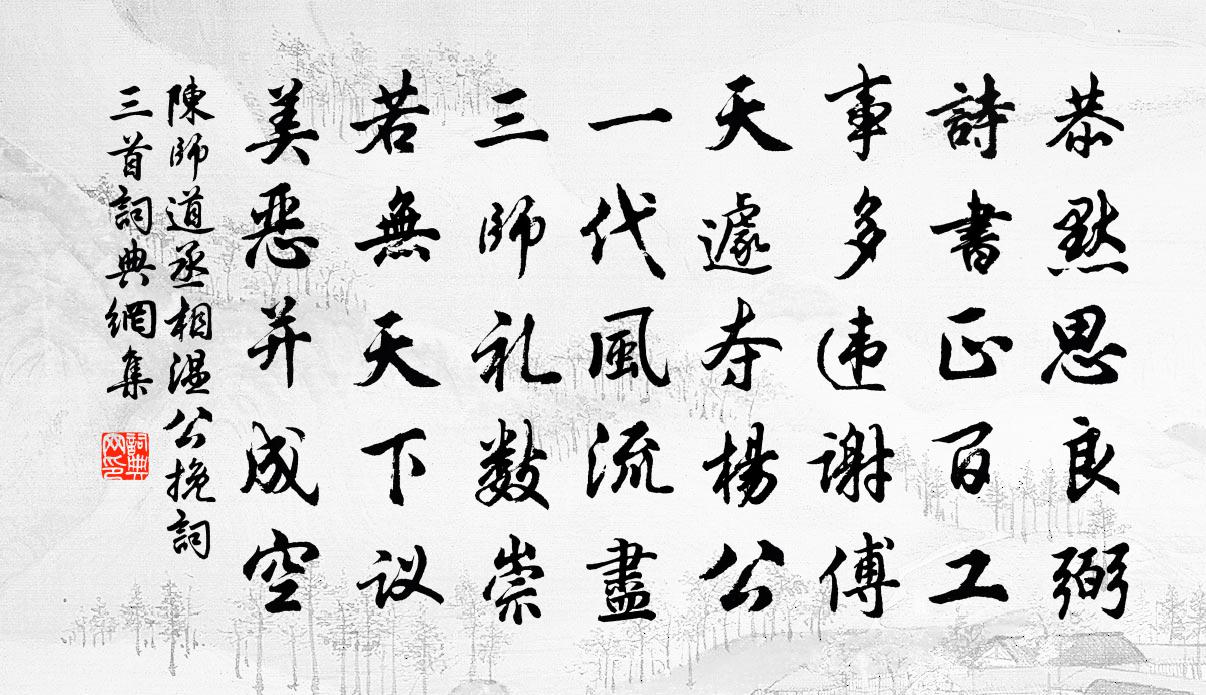 恭默思良弼
詩書正百工
事多違謝傅
天遽夺楊公
一代風流盡
三師礼数崇
若無天下议
美恶并成空
陳師道丞相温公挽詞
三首詞典網集
詞典網印